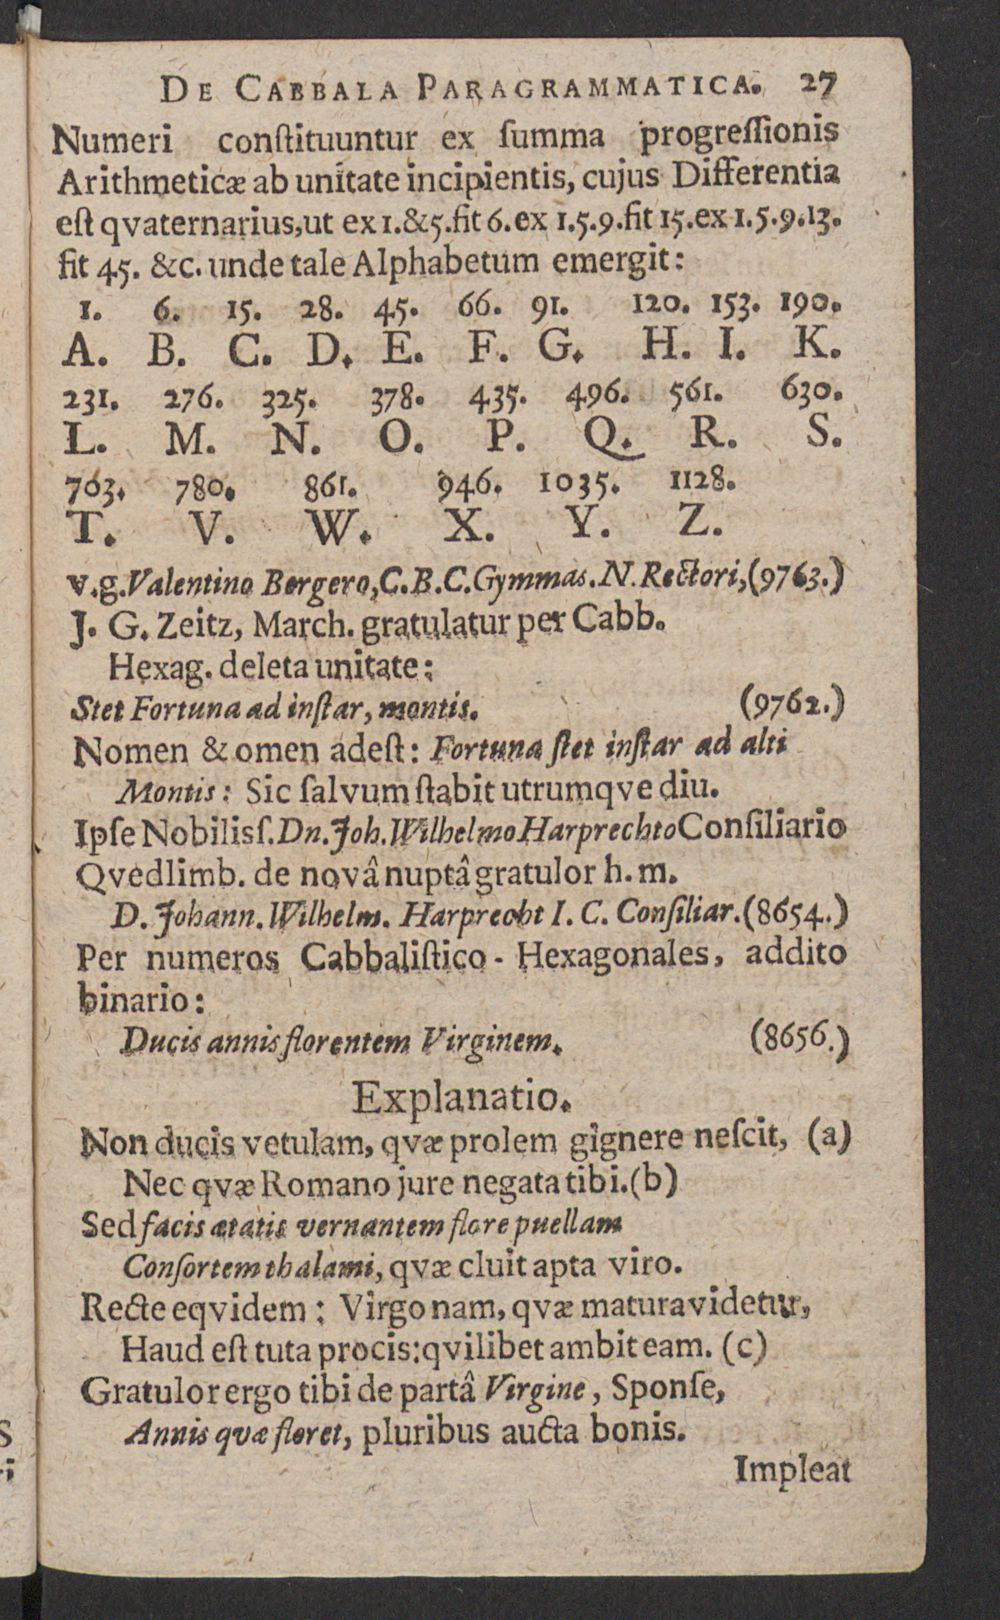 DE CABBALA PARAGRAMMATICA. 27
Numeri conſtituuntur ex ſumma progreſſionis
Arithmeticæ ab unitate incipientis, cujus Differentia
eſt qvaternarius, ut ex 1.&5.fit 6. ex 1.5.9.fit 15.ex 1.5.9.13.
fit 45. &c. unde tale Alphabetum emergit:
1. 6. 15. 28. 45. 66. 91. 120. 153. 190.
A. B. C. D. E. F. G. H. I. K.
231. 276. 325. 378. 435. 496. 561. 630.
L. M. N. O. P. Q. R. S.
703. 780. 861. 946. 1035. 1128.
T. V. W. X. Y. Z.
v.g. Valentino Bergero, C.B.C.Gymmas.N.Rectori, (9763.)
J. G. Zeitz, March. gratulatur per Cabb.
Hexag. deleta unitate:
Stet Fortuna ad inſtar, montis. (9762.)
Nomen & omen adeſt: Fortuna ſtet inſtar ad alti
Montis: Sic ſalvum ſtabit utrumqve diu.
Ipſe Nobiliſſ. Dn. Joh. Wilhelmo Harprechto Conſiliario
Qvedlimb. de novâ nuptâ gratulor h. m.
D. Johann. Wilhelm. Harprecht I. C. Conſiliar. (8654.)
Per numeros Cabbaliſtico - Hexagonales, addito
binario:
Ducis annis florentem Virginem. (8656.)
Explanatio.
Non ducis vetulam, qvæ prolem gignere neſcit, (a)
Nec qvæ Romano jure negata tibi. (b)
Sed facis ætatis vernantem flore puellam
Conſortem thalami, qvæ cluit apta viro.
Recte eqvidem: Virgo nam, qvæ matura videtur,
Haud eſt tuta procis: qvilibet ambit eam. (c)
Gratulor ergo tibi de partâ Virgine, Sponſe,
Annis qvæ floret, pluribus aucta bonis.
Impleat